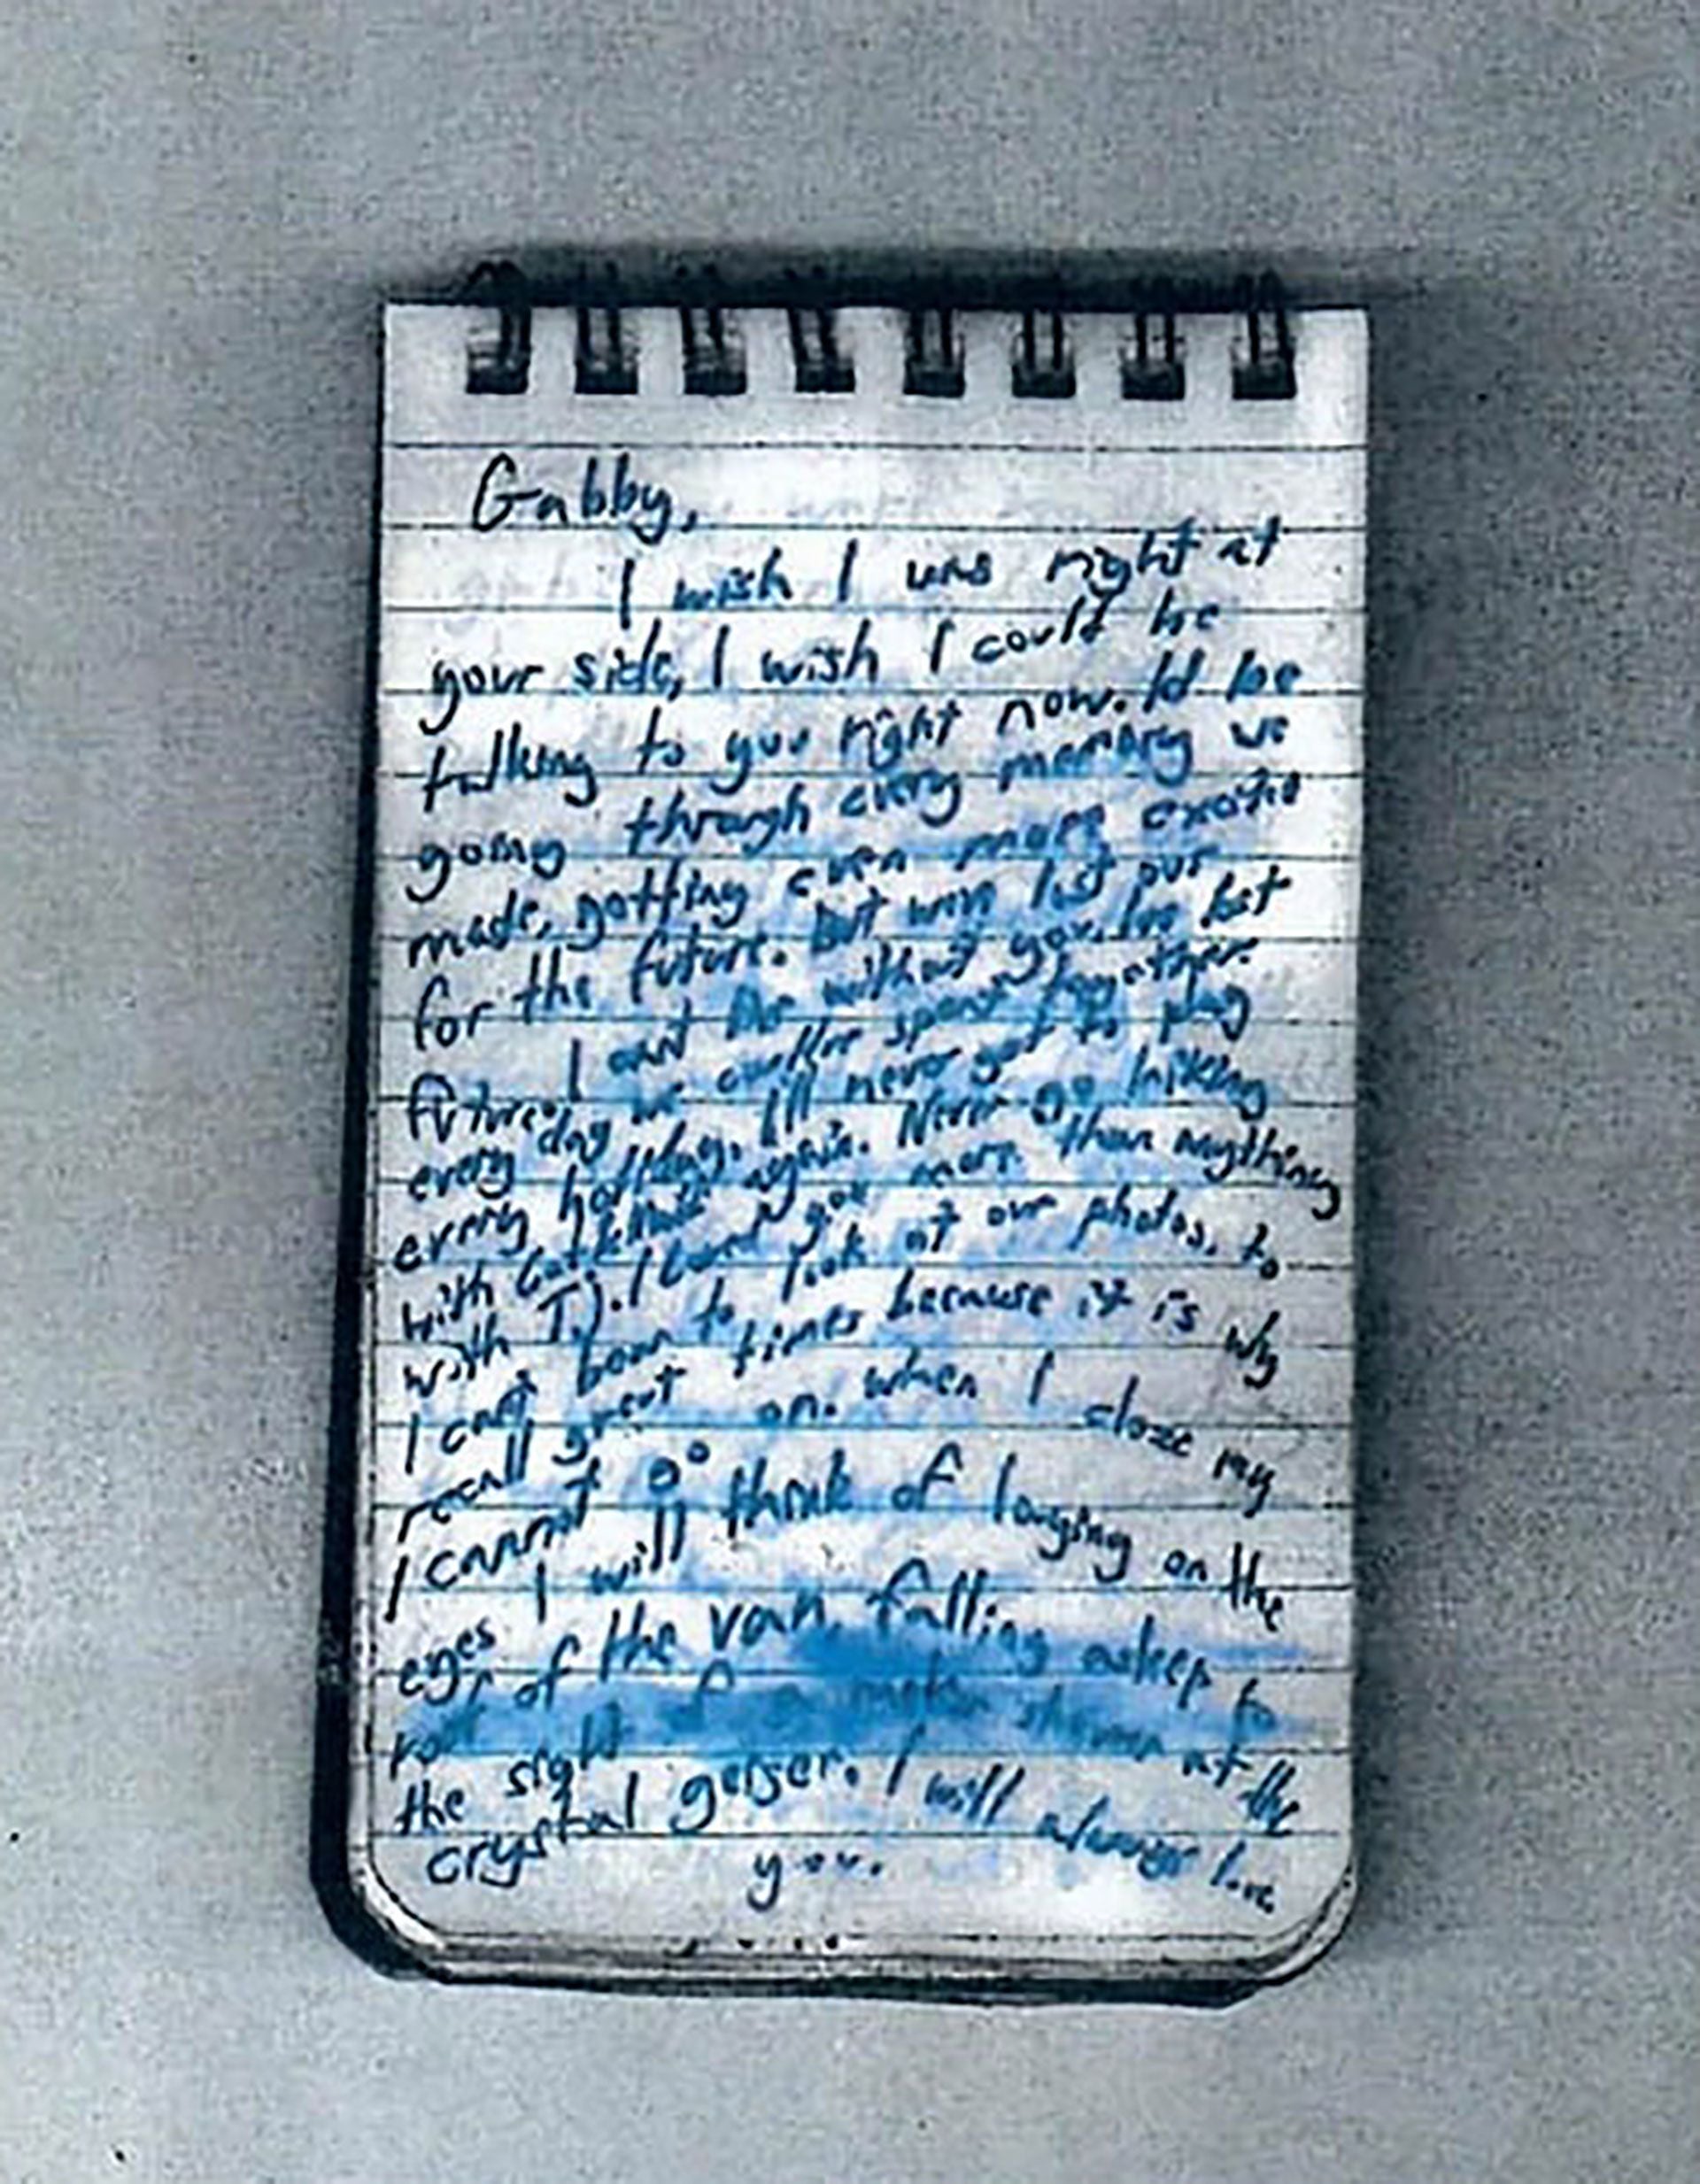 Gabby,
I wish I was right at
your side, I wish I could be
talking to you right now. Id be
going through every memory we
made, getting even more excited
for the future. But weve lost our
future. I cant live without you. Ive lost
every day we could've spent together.
every holiday. Ill never get to play
with again. Never go hiking
with TJ. I loved you more than anything
I cant bear to look at our photos, to
recall great times because it is why
I cannot go on. when I close my
eyes I will think of laughing on the
roof of the van, falling asleep to
the sight of at the
crystal geiser. I will always love
you.